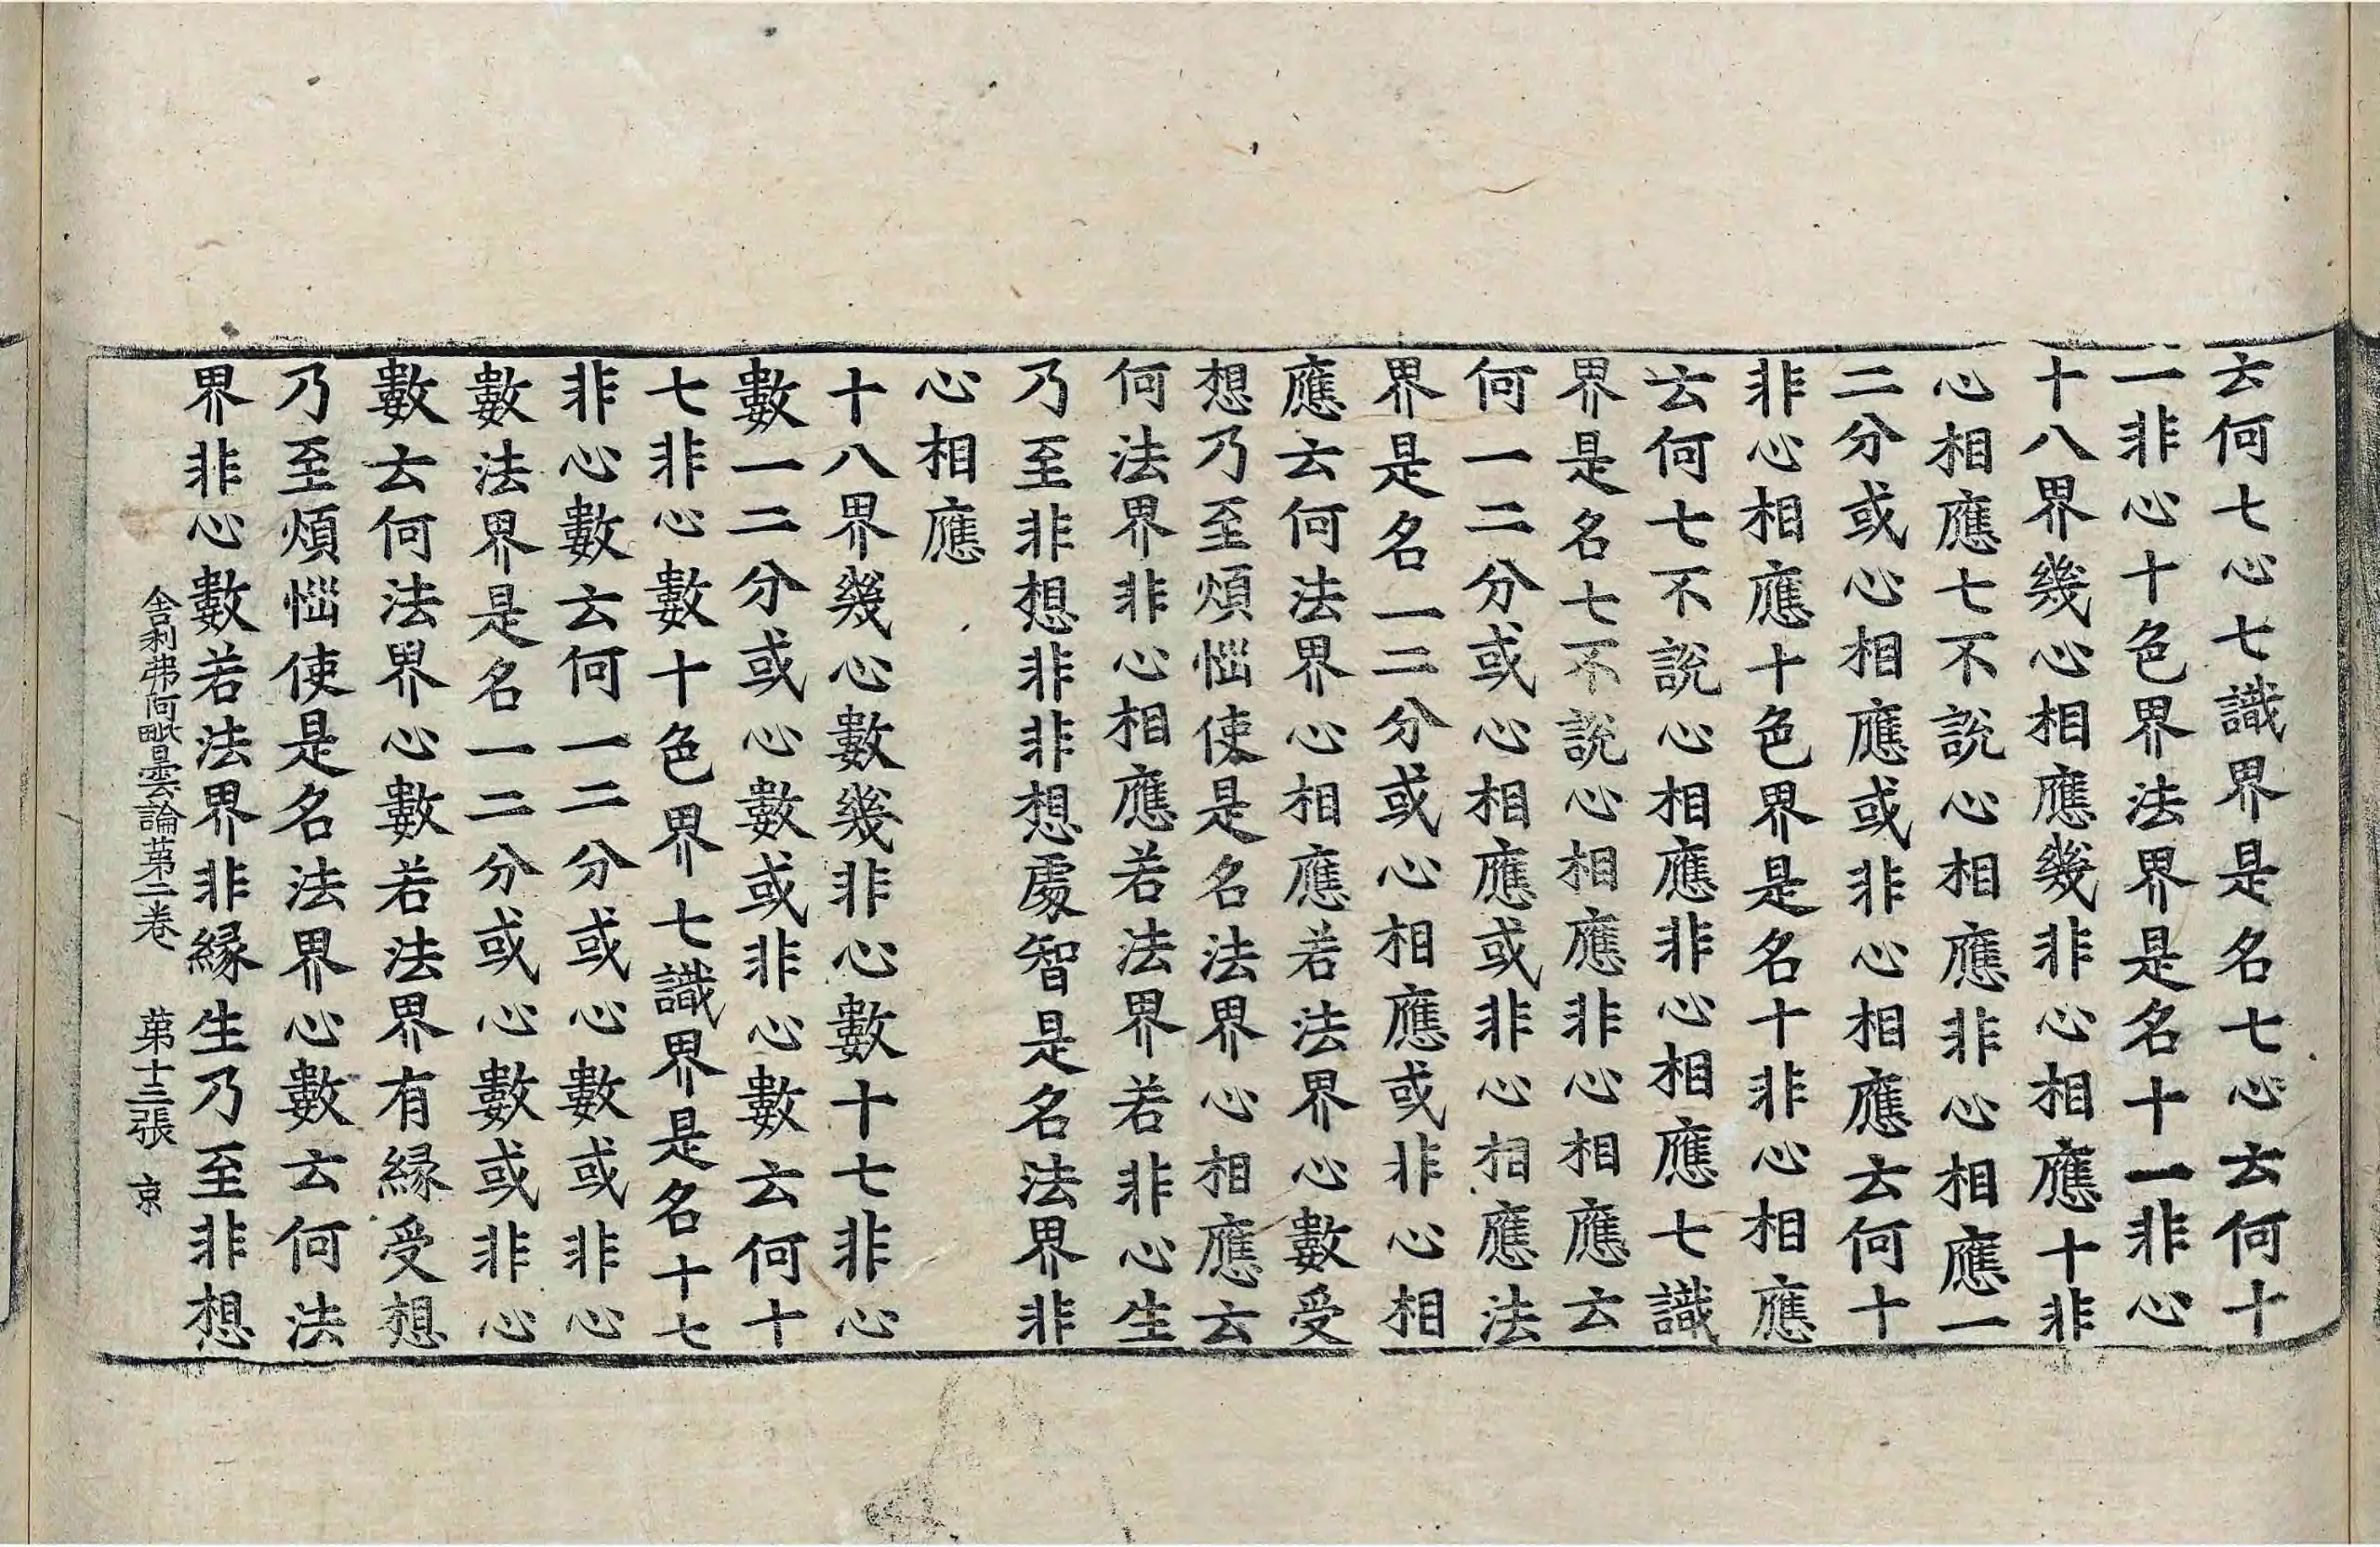 云何七心七識界是名七心云何十
一非心十色界法界是名十一非心
十八界幾心相應幾非心相應十非
心相應七不說心相應非心相應一
二分或心相應或非心相應云何十
非心相應十色界是名十非心相應
云何七不說心相應非心相應七識
界是名七不說心相應非心相應云
何一二分或心相應或非心相應法
界是名一二分或心相應或非心相
應云何法界心相應若法界心數受
想乃至煩惱使是名法界心相應云
何法界非心相應若法界若非心生
乃至非想非非想處智是名法界非
心相應
十八界幾心數幾非心數十七非心
數一二分或心數或非心數云何十
七非心數十色界七識界是名十七
非心數云何一二分或心數或非心
數法界是名一二分或心數或非心
數云何法界心數若法界有緣受想
乃至煩惱使是名法界心數云何法
界非心數若法界非緣生乃至非想
舍利弗阿毗曇論第二卷　第十三張　京